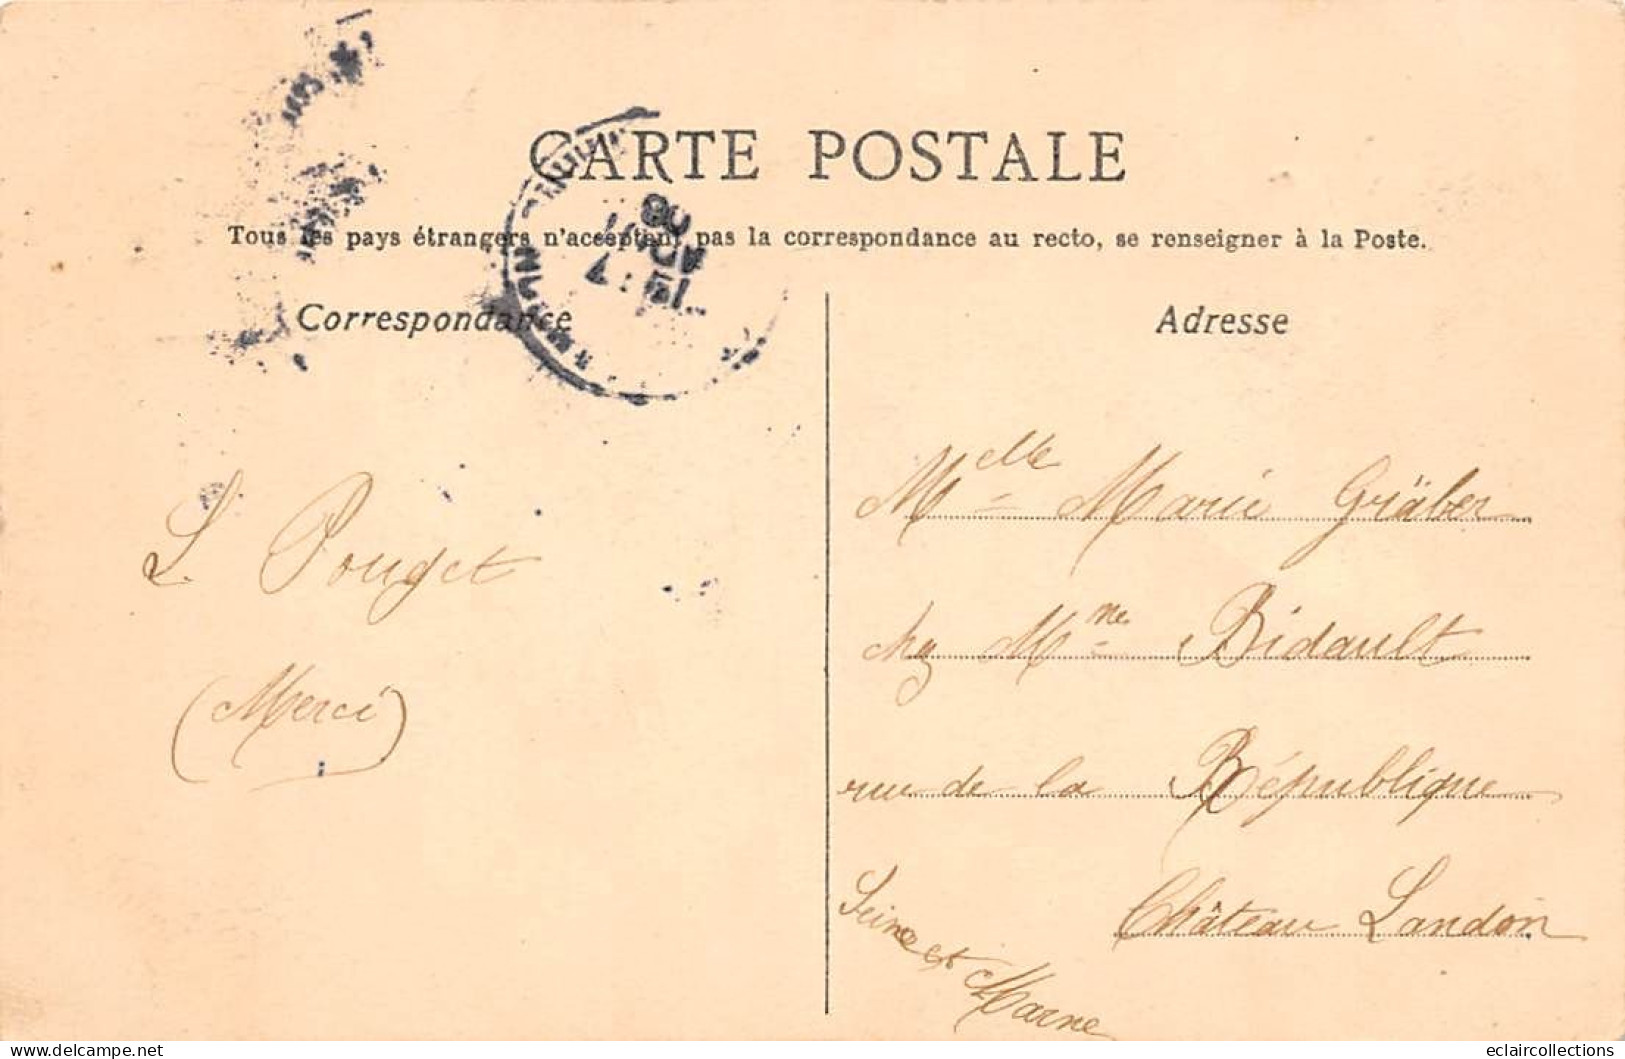 CARTE POSTALE
Tous les pays étrangers n'acceptent pas la correspondance au recto, se renseigner à la Poste.
Correspondance
Adresse
L. Pouget
(Merci)
Melle Marie Gräber
chez Mme Bidault
rue de la République
Château Landon
Seine et Marne
08
delcampe.net
eclaircollections